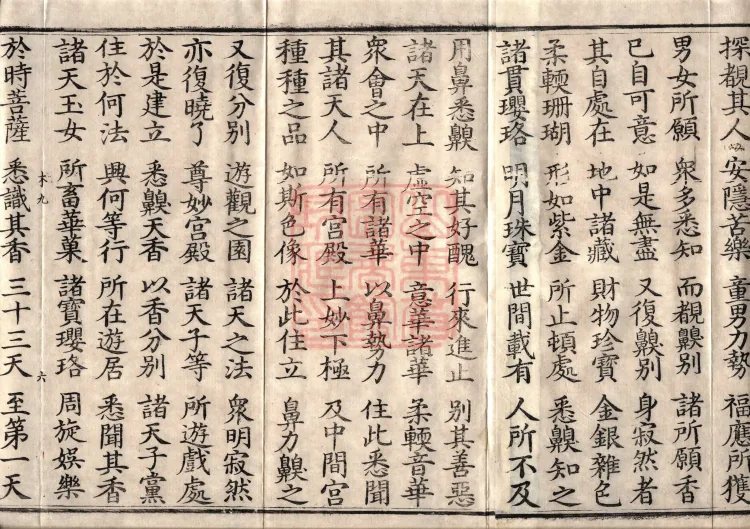 探覩其人 安隱苦樂 童男力勢 福應所獲
男女所願 衆多悉知 而覩齅別 諸所願香
已自可意 如是無盡 又復齅別 身寂然者
其自處在 地中諸藏 財物珍寶 金銀雜色
柔輭珊瑚 形如紫金 所止頓處 悉齅知之
諸貫瓔珞 明月珠寶 世間載有 人所不及
用鼻悉齅 知其好醜 行來進止 別其善惡
諸天在上 虛空之中 意華諸華 柔輭音華
衆會之中 所有諸華 以鼻勢力 住此悉聞
其諸天人 所有宮殿 上妙下極 及中間宮
種種之品 如斯色像 於此住立 鼻力齅之
又復分別 遊觀之園 諸天之法 衆明寂然
亦復曉了 尊妙宮殿 諸天子等 所遊戲處
於是建立 悉齅天香 以香分別 諸天子黨
住於何法 興何等行 所在遊居 悉聞其香
諸天玉女 所畜華菓 諸寶瓔珞 周旋娛樂
於時菩薩 悉識其香 三十三天 至第一天